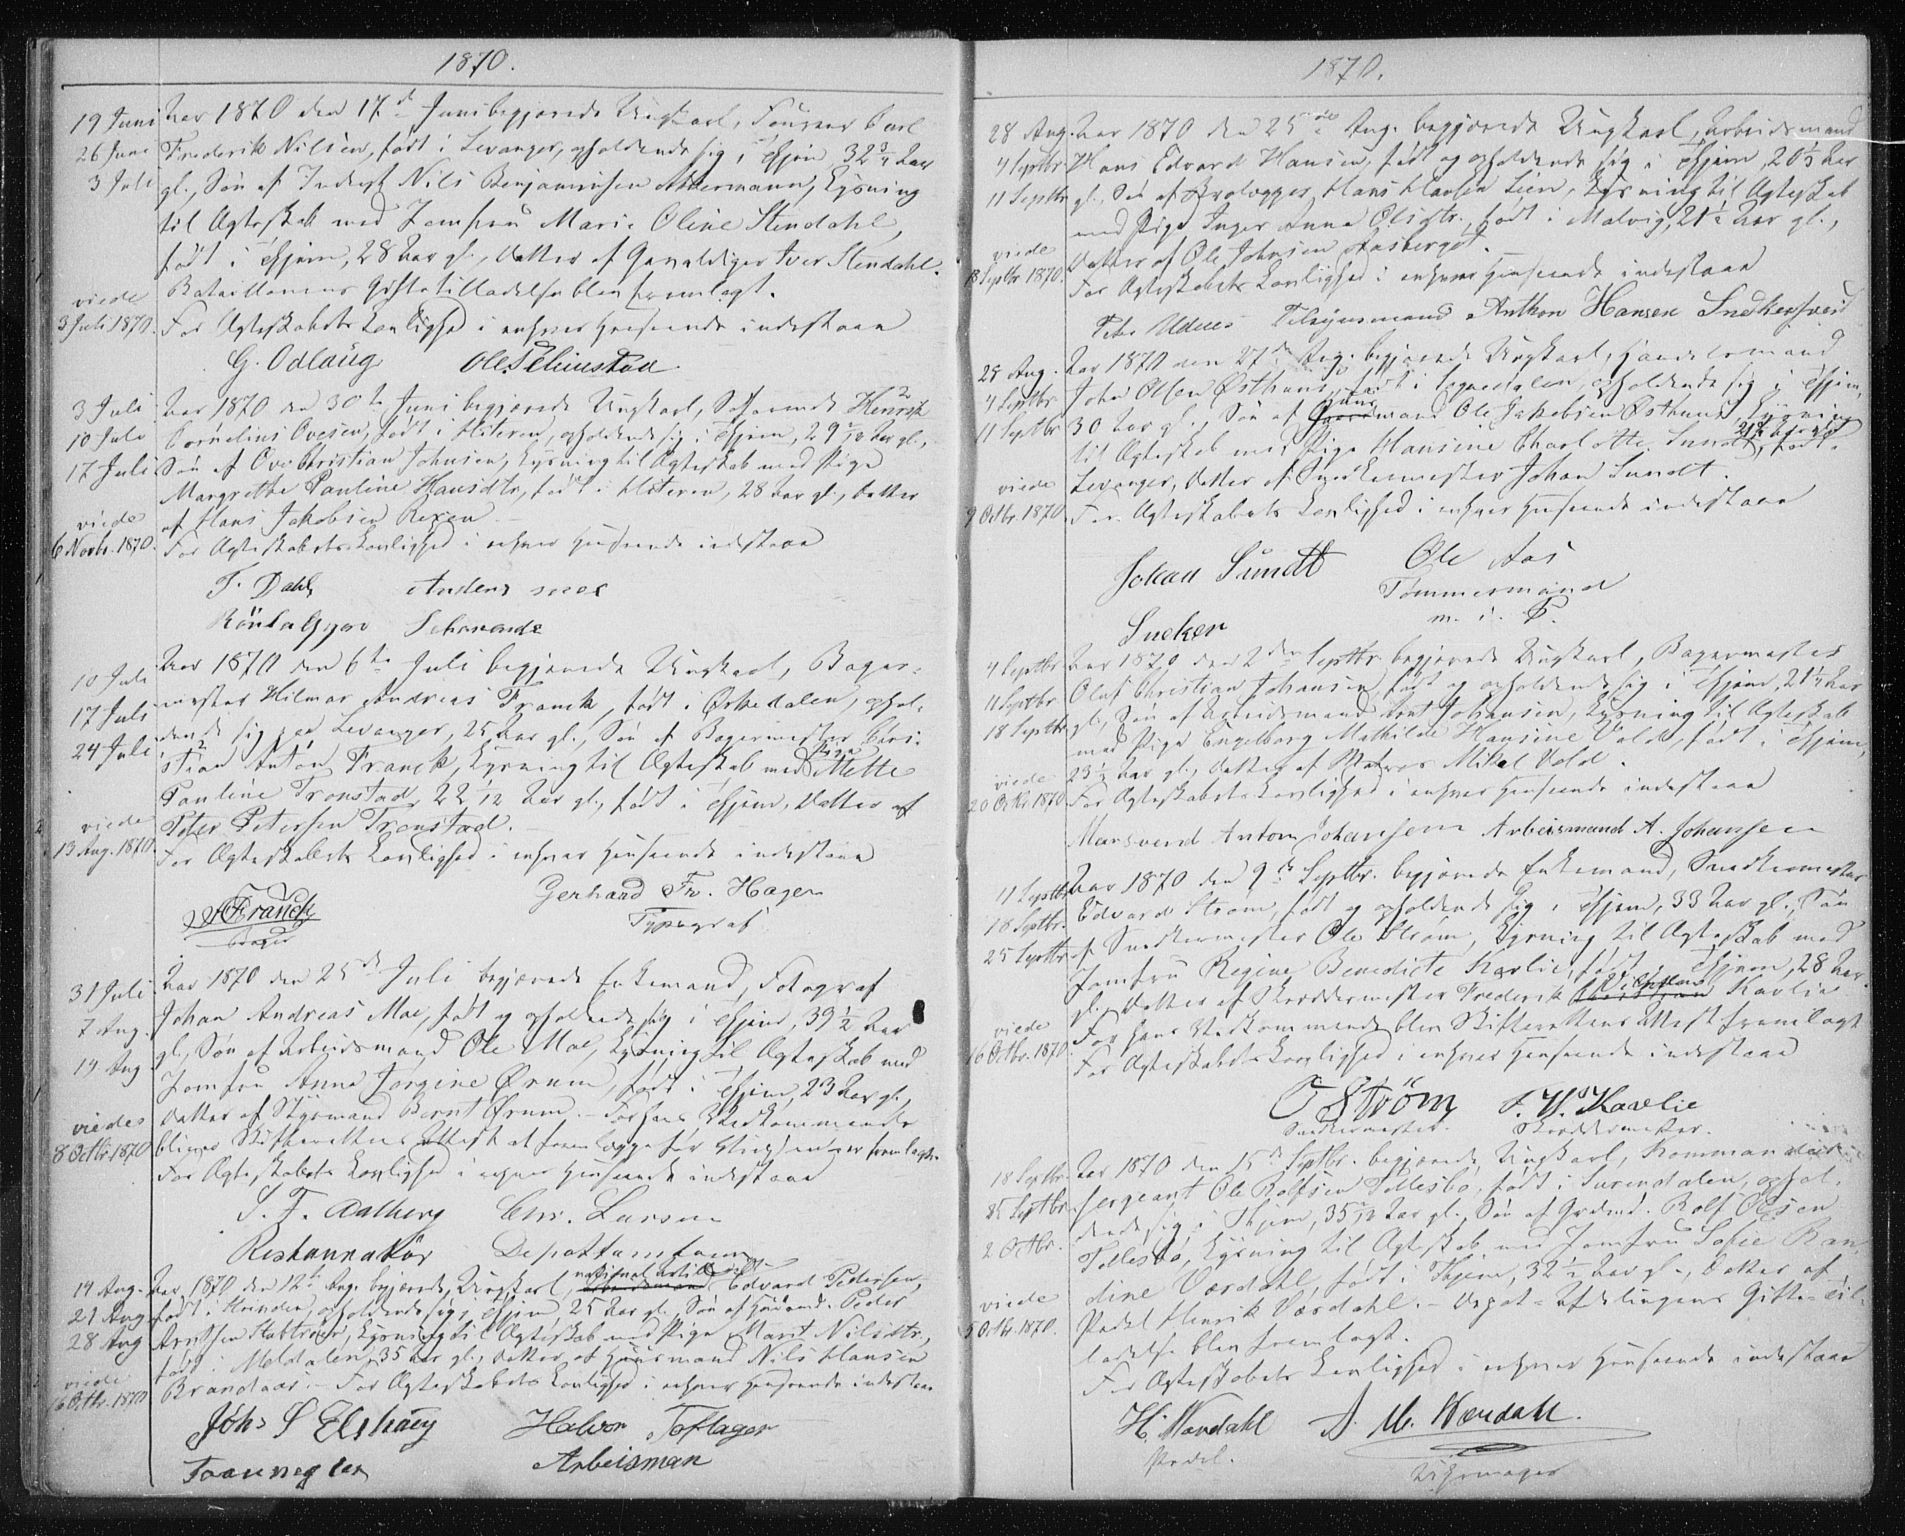 1870.
19 Juni Aar 1870 den 17de Juni begjærede Ungkarl, Carl
26 Juni Frederik Nilsen, født i Levanger, opholdende sig i Thjem, 32 3/4 Aar
3 Juli gl., Søn af Nils Benjaminsen Akkermann, Lysning
til Ægteskab med Jomfru Marie Oline Stendahl,
født i Thjem, 28 Aar gl., Datter af Gevaldiger Iver Stendahl.
viede Bataillonens Giftetilladelse blev fremlagt.
3 Juli 1870. For Ægteskabets Lovlighed i enhver Henseende indestaae
G. Odlaug Ole
3 Juli Aar 1870 den 30te Juni begjærede Ungkarl, Søfarende Henrik
10 Juli Cornelius Ovesen, født i Hiteren, opholdende sig i Thjem, 29 Aar gl.,
17 Juli Søn af Ove Christian Johnsen, Lysning til Ægteskab med Pige
Margrethe Pauline Hansdtr., født i Hiteren, 28 Aar gl., Datter
viede af Hans Jakobsen Rexen.
6 Novbr. 1870. For Ægteskabets Lovlighed i enhver Henseende indestaae
T. Dahl Anders
10 Juli Aar 1870 den 6te Juli begjærede Ungkarl, Bager-
17 Juli mester Hilmar Andreas Franck, født i Ørkedalen, ophol-
24 Juli dende sig paa Levanger, 25 Aar gl., Søn af Bagermester Chri-
stian Anton Franck, Lysning til Ægteskab med Pige Mette
Pauline Tronstad, 22 Aar gl., født i Thjem, Datter af
viede Peter Petersen Tronstad.
13 Aug. 1870. For Ægteskabets Lovlighed i enhver Henseende indestaae
Franck Gerhard Fr. Hagen
Bager Typograf
31 Juli Aar 1870 den 25de Juli begjærede Enkemand, Fotograf
7 Aug. Johan Andreas Moe, født og opholdende sig i Thjem, 39 1/2 Aar
14 Aug gl., Søn af Arbeidsmand Ole Moe, Lysning til Ægteskab med
Jomfru Anna Jørgine Ørum, født i Thjem, 23 Aar gl.,
viedes Datter af Styrmand Bernt Ørum. – For hans Vedkommende
8 Octbr. 1870 bliver Skifterettens Attest at fremlægge før Vielsen er fremlagt.
For Ægteskabets Lovlighed i enhver Henseende indestaae
S. F. Aalberg Chr. Larsen
14 Aug. Aar 1870 den 12te Aug. begjærede Ungkarl, Edvard Pedersen,
21 Aug født i Strinden, opholdende sig i Thjem, 25 Aar gl., Søn af Peder
28 Aug Arntsen Lysning til Ægteskab med Pige Marit Nilsdtr.,
født i Meldalen, 35 Aar gl., Datter af Huusmand Nils Hansen
viede Brandaas. – For Ægteskabets Lovlighed i enhver Henseende indestaae
16 Octbr. 1870
Johs S Elshaug Halvor Toflager
Arbeisman
1870.
28 Aug. Aar 1870 den 25de Aug. begjærede Ungkarl, Arbeidsmand
4 Septbr Hans Edvard Hansen, født og opholdende sig i Thjem, 20 1/2 Aar
11 Septbr gl., Søn af Brolægger Hans Hansen Lien, Lysning til Ægteskab
med Pige Inger Anna Olsdtr., født i Malvig, 21 Aar gl.,
viede Datter af Ole Johnsen Aasberget.
18 Septbr 1870. For Ægteskabets Lovlighed i enhver Henseende indestaae
Peter Udnes Anthon Hansen Snedkersvend
29 Aug. Aar 1870 den 27de Aug. begjærede Ungkarl, Handelsmand
4 Septbr. John Olsen Østhuus, født i Soknedalen, opholdende sig i Thjem,
11 Septbr 30 Aar gl., Søn af Huusmand Ole Jakobsen Østhuus, Lysning
til Ægteskab med Pige Hansine Charlotte Sundt, 21 Aar gl., født i
viede Levanger, Datter af Snedkermester Johan Sundt.
9 Octbr. 1870. For Ægteskabets Lovlighed i enhver Henseende indestaae
Johan Sundt Ole Aas
Tømmermand
Sneker m. i. P.
4 Septbr Aar 1870 den 2den Septbr. begjærede Ungkarl, Bagermester
11 Septbr Oluf Christian Johansen, født og opholdende sig i Thjem, 21 1/4 Aar
18 Septbr gl., Søn af Arbeidsmand Johansen, Lysning til Ægteskab
med Pige Engeborg Mathilde Hansine Vold, født i Thjem,
viede 23 1/2 Aar gl., Datter af Matros Mikal Vold.
20 Octbr 1870 For Ægteskabets Lovlighed i enhver Henseende indestaae
Mursvend Anton Johansen Arbeismand A. Johansen
11 Septbr Aar 1870 den 9de Septbr. begjærede Enkemand, Snedkermester
18 Septbr. Edvard Strøm, født og opholdende sig i Thjem, 33 Aar gl., Søn
25 Septbr. af Snedkermester Ole Strøm, Lysning til Ægteskab med
Jomfru Regine Benedicte Kavlie, født i Thjem, 28 Aar
gl., Datter af Skræddermester Frederik Kavlie
viede For hans Vedkommende blev Skifterettens Attest fremlagt
16 Octbr. 1870. For Ægteskabets Lovlighed i enhver Henseende indestaae
O Strøm F. W. Kavlie
Snedkermester. Skræddermester.
18 Septbr. Aar 1870 den 15de Septbr. begjærede Ungkarl, Kommandeer
25 Septbr. Sergeant Ole Rolfsen Tellesbø, født i Surendalen, ophol-
2 Octbr. dende sig i Thjem, 35 Aar gl., Søn af Grdmd. Rolf Olsen
Tellesbø, Lysning til Ægteskab med Jomfru Sofie Ran-
dine Værdahl, født i Thjem, 32 1/2 Aar gl., Datter af
viede Pedel Henrik Værdahl. – Depot-Afdelingens Gifte-Til-
5 Octbr. 1870. ladelse blev fremlagt.
For Ægteskabets Lovlighed i enhver Henseende indestaae
H. Værdahl A. M. Wærdahl.
Pedel. Uhrmager